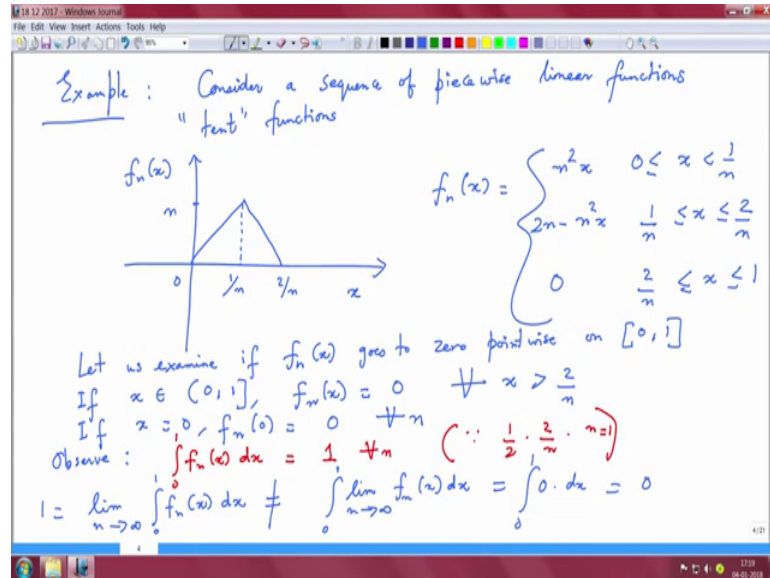 18 12 2017 - Windows Journal
File Edit View Insert Actions Tools Help
Example : Consider a sequence of piecewise linear functions
"tent" functions
fₙ(x)
n
0 1/n 2/n x
fₙ(x) = { n²x 0 ≤ x < 1/n
2n - n²x 1/n ≤ x ≤ 2/n
0 2/n ≤ x ≤ 1
Let us examine if fₙ(x) goes to zero pointwise on [0,1]
If x ∈ (0,1], fₙ(x) = 0 ∀ x > 2/n
If x = 0, fₙ(0) = 0 ∀ n
Observe : ∫₀¹ fₙ(x) dx = 1 ∀ n (∵ 1/2 · 2/n · n = 1)
1 = lim n→∞ ∫₀¹ fₙ(x) dx ≠ ∫₀¹ lim n→∞ fₙ(x) dx = ∫₀¹ 0 · dx = 0
4/21
17:19
04-01-2018